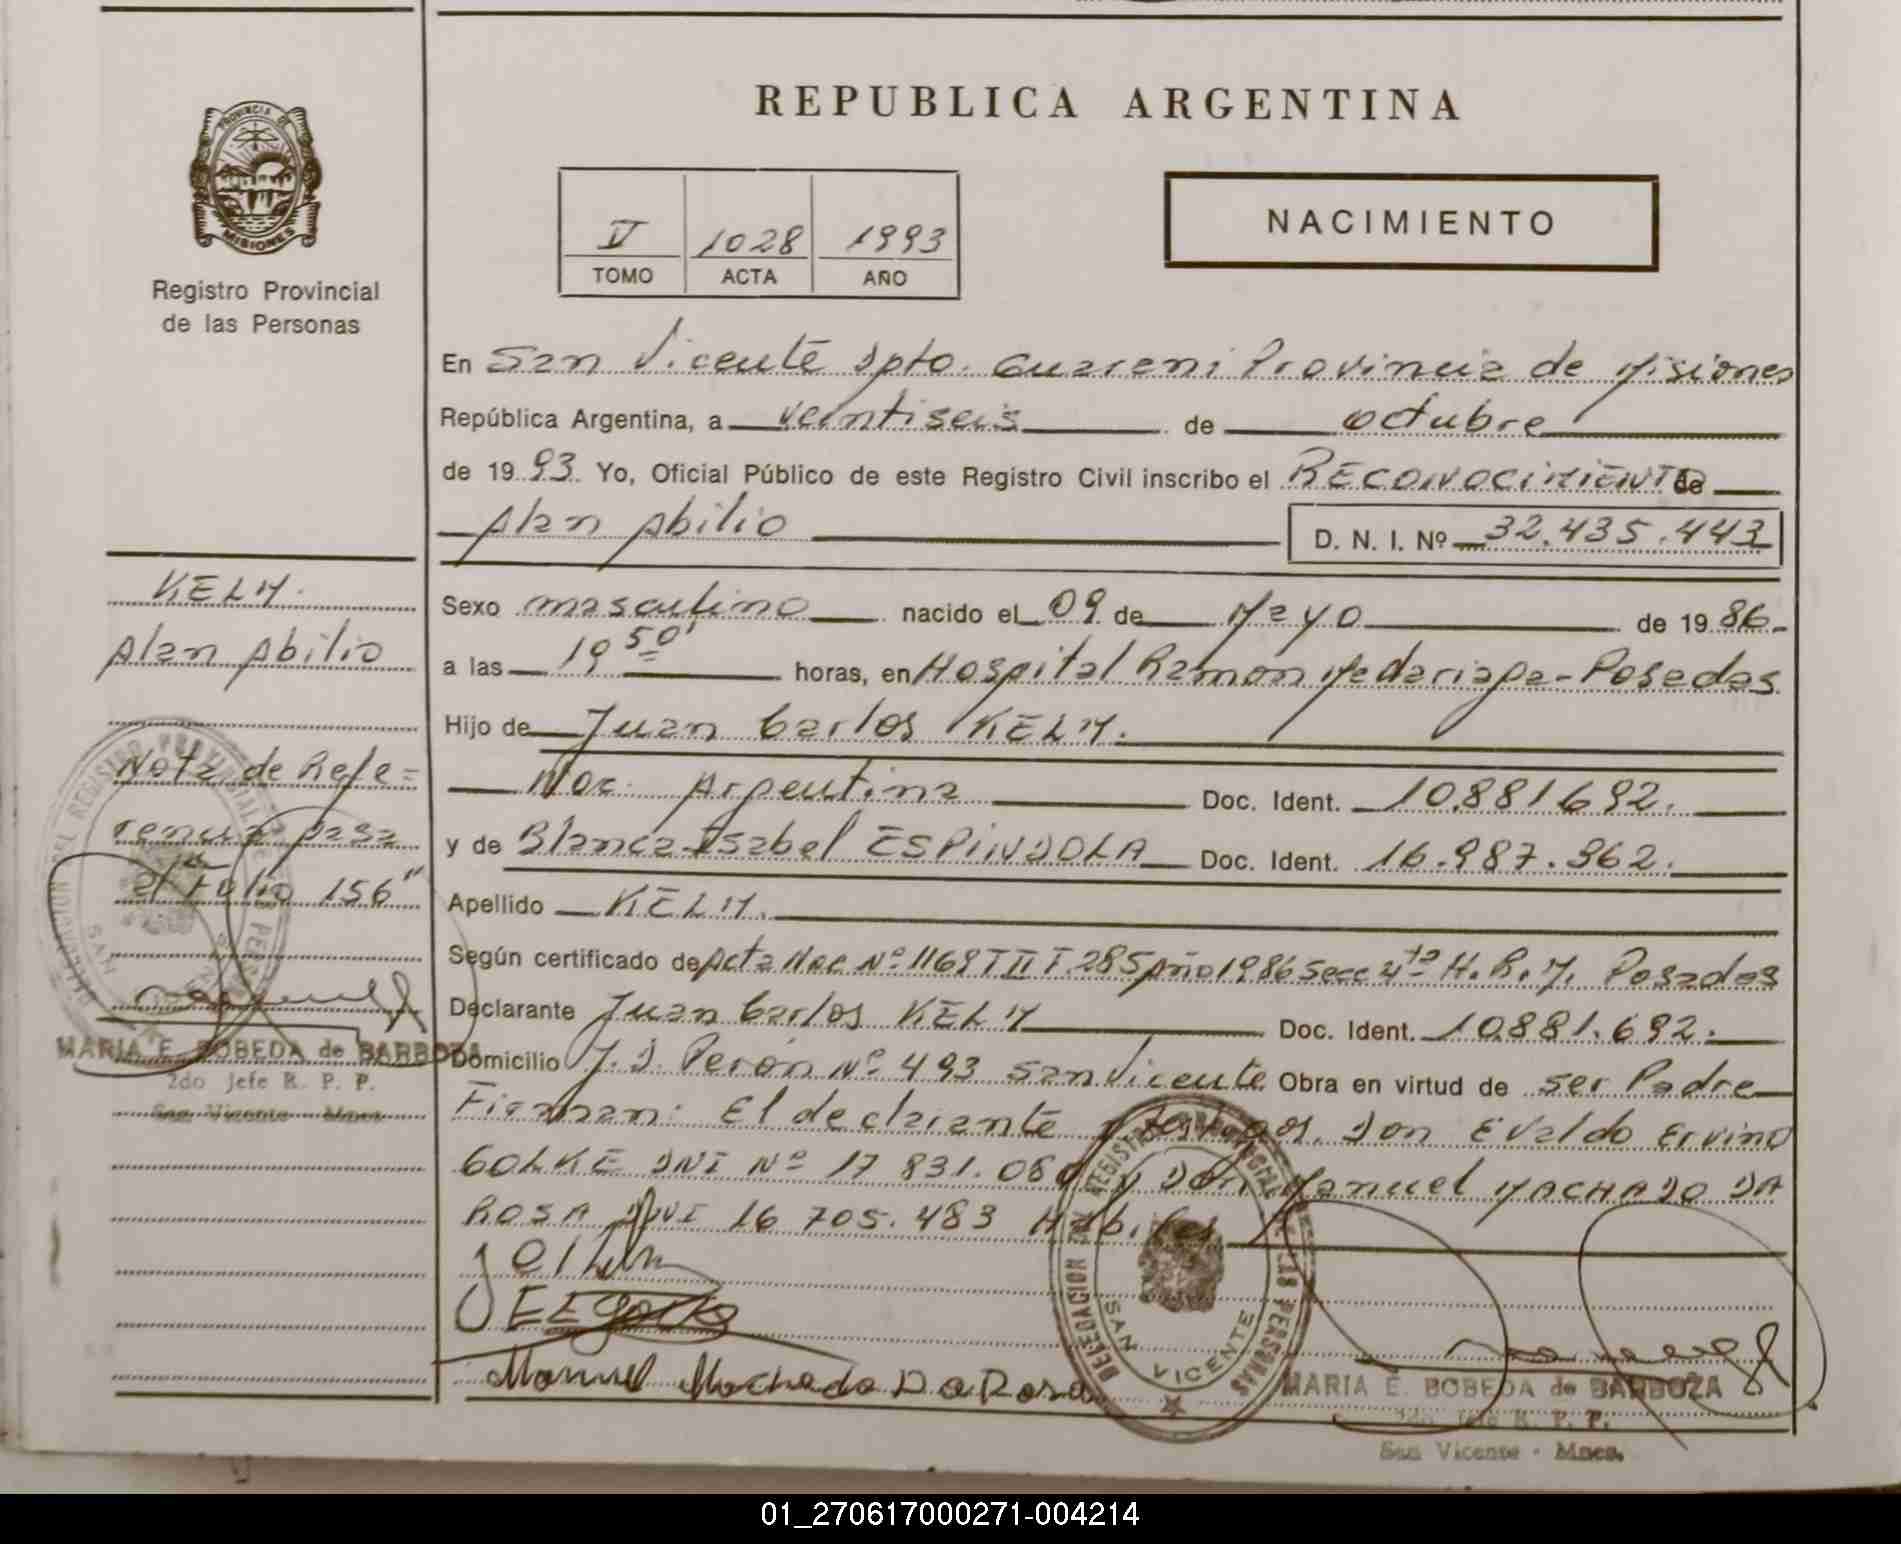 REPUBLICA ARGENTINA
PROVINCIA DE
MISIONES
Registro Provincial
de las Personas
V 1028 1993
TOMO ACTA AÑO
NACIMIENTO
En San Vicente Dpto. Guarani Provincia de Misiones
República Argentina, a veintiseis de octubre
de 1993. Yo, Oficial Público de este Registro Civil inscribo el RECONOCIMIENTO de
Alan Abilio
D. N. I. Nº 32.435.443
Sexo masculino nacido el 09 de Mayo de 1986
a las 19 50' horas, en Hospital Ramon Madariaga - Posadas
Hijo de Juan Carlos KELM.
Nac. Argentina Doc. Ident. 10.881.692.
y de Blanca Isabel ESPINDOLA Doc. Ident. 16.987.962.
Apellido KELM.
Según certificado de Acta Nac Nº 1168 T III F 285 Año 1986 Secc 4ta H. R. M. Posadas
Declarante Juan Carlos KELM Doc. Ident. 10.881.692.
Domicilio J. D. Perón Nº 493 San Vicente Obra en virtud de ser Padre
Firman: El declarante y testigos Don Evaldo Ervino
GOLKE DNI Nº 17 831.080 y Don Manuel MACHADO DA
ROSA DNI 16 705.483 Habiles
Manuel Machado Da Rosa
DELEGACION DEL REGISTRO PROVINCIAL DE LAS PERSONAS
SAN VICENTE
MARIA E. BOBEDA de BARBOZA
2do Jefe R. P. P.
San Vicente - Mnes.
KELM.
Alan Abilio
Nota de Refe=
rencia pasa
al folio 156"
DELEGACION DEL REGISTRO PROVINCIAL DE LAS PERSONAS
SAN
MARIA E. BOBEDA de BARBOZA
2do Jefe R. P. P.
San Vicente - Mnes
01_270617000271-004214